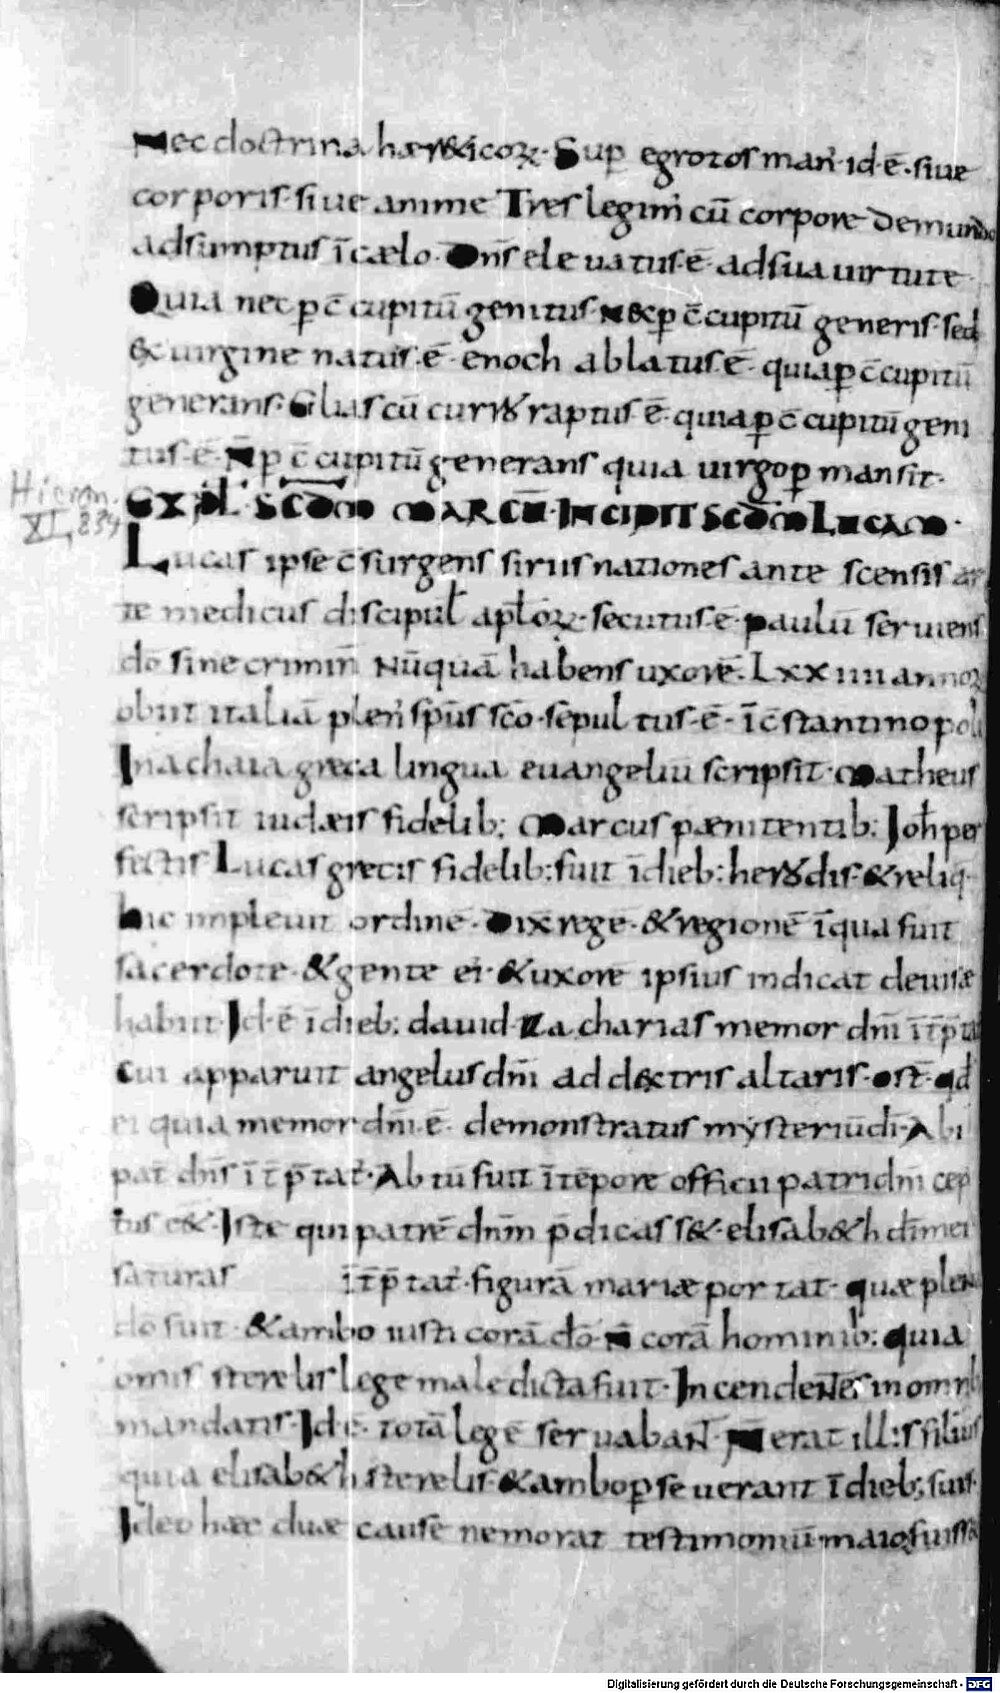 Nec doctrina hær&icoꝝ· Sup̄ egrotos man̄· id·ē·siue
corporis·siue anime Tres legim̄ cū corpore demundo
adsumptus ī cælo· Dn̄s eleuatus·ē· adsua uirtute·
Quia nec p̱ c̄cupitū genitus·nec p̱ c̄cupitū generis·sed
ex uirgine natus·ē· enoch ablatus·ē· quia p̱ c̄cupitū
generans· Elias cū curru raptus·ē· quia p̱ c̄cupitū geni
tus·ē· N̄ p̱ c̄cupitū generans quia uirgo p̱mansit·
Hieron. XI, 834
EXPL· SCDM MARCŪ· INCIPIT SCDM LUCAM·
Lucas ipse c̄surgens sirus nationes ante scensis ar
te medicus discipul̄ apl̄oꝝ·secutus·ē·paulū seruiens
dō sine crimin̄ nūquā habens uxorē· Lxx iiii annoꝝ
obiit italiā plen̄ sp̄us sc̄o·sepultus·ē· ī c̄stantinopoli
In achaia greca lingua euangeliū scripsit· Matheus
scripsit iudæis fidelib; Marcus pænitentib; Joh̄ per
fectis Lucas grecis fidelib; fuit īdieb; herodis·&reliq·
hic impleuit ordinē· Dix̄ regē·&regionē īqua fuit
sacerdote·&gente ei·&uxorē ipsius indicat deuisæ
habiit· Id·ē īdieb; dauid· Zacharias memor dn̄i īt̄p̄tat
Cui apparuit angelus dn̄i ad dextris altaris·ost̄·qd̄
ei quia memor dn̄i·ē· demonstratus mysteriū dī· Abi
pat̄ dn̄s īt̄p̄tat̄· Ab tū fuit ī tēpore officii patri dn̄i cep
tus e&· Iste qui patrē dnm̄ p̄dicass&· elisab&h dī mei
saturas īt̄p̄tat̄·figurā mariæ portat· quæ plen
dō fuit·&ambo iusti corā dō·n̄ corā hominib; quia
omis sterelis lege maledicta fuit· Incendentes in omnib
mandatis· Id·ē· totā legē seruabant· N̄ erat illis filius
quia elisab&h sterelis·&ambo p̱seuerant īdieb; suis·
Ideo hæc duæ cause nemorat testimoniū maioꝝ fuisse